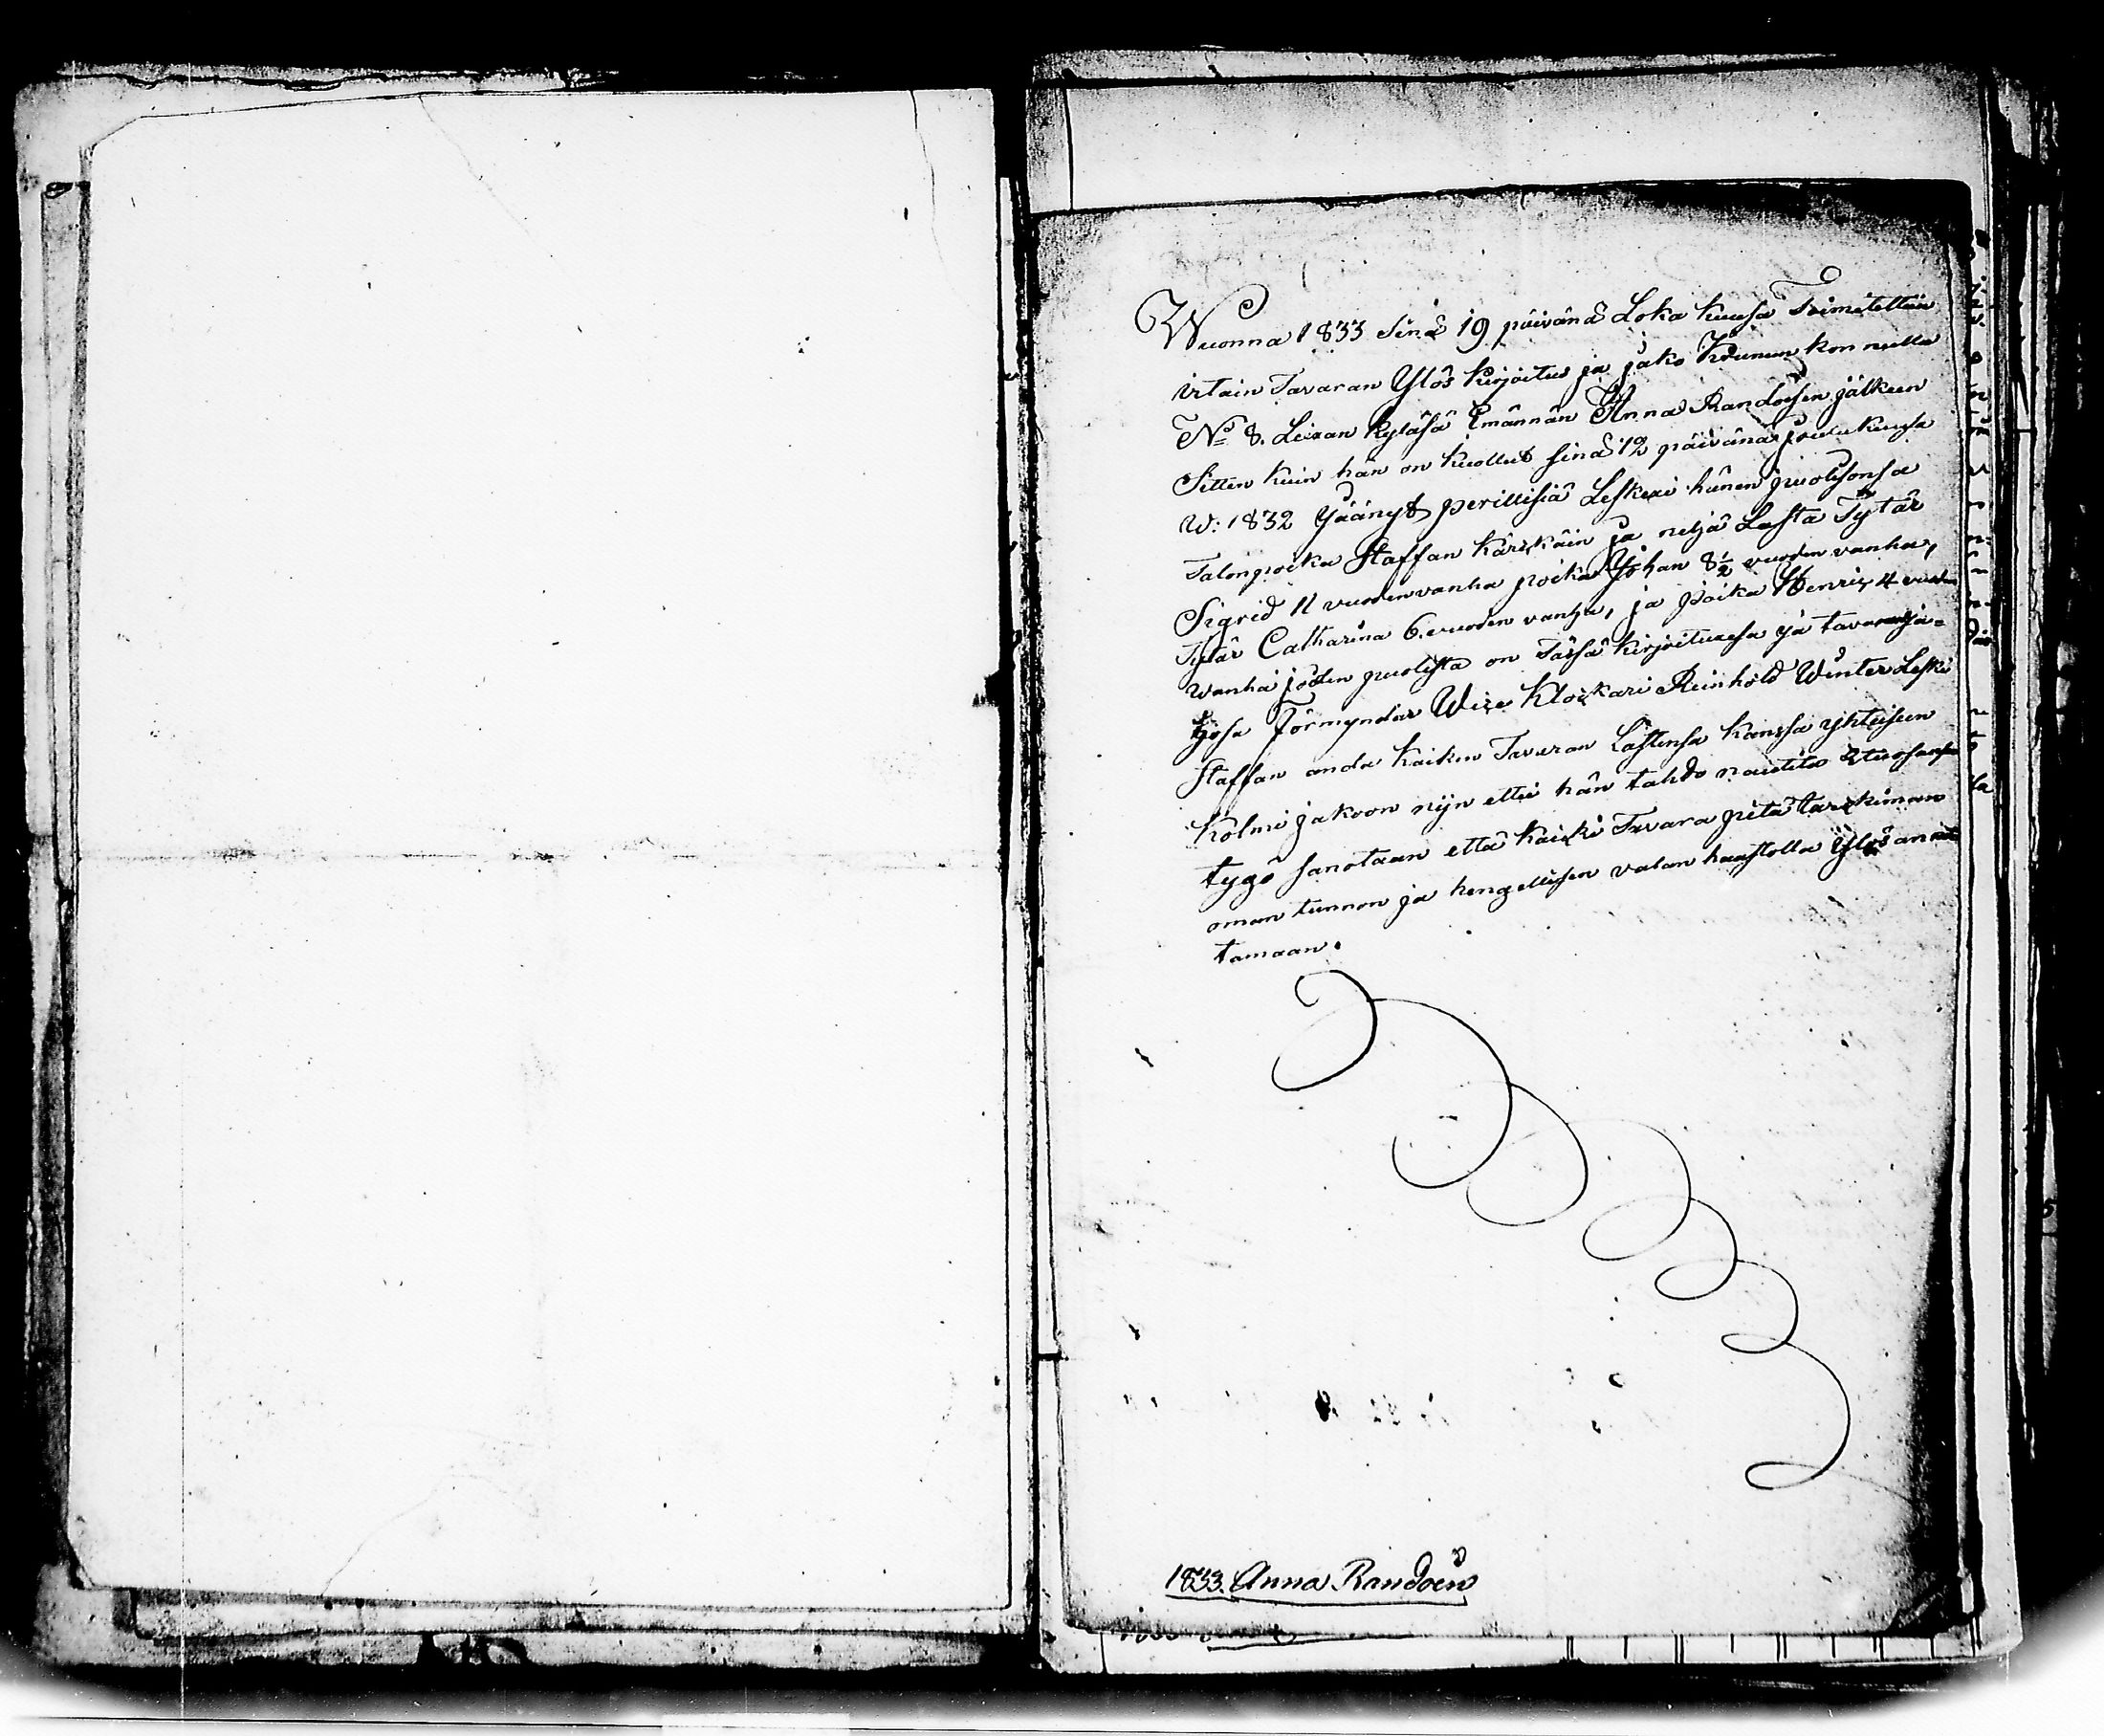 Wuonna 1833 Sinä 19 päivänä Loka kuusa Toimitettiin
irtain Tavaran Ylös kirjoitus ja jako Kruunun konnulla
No 8. Leiran kyläsä Emännän Anna Randosen jälkeen
Sitten kuin hän on kuollut sinä 12 päivänä joulukuusa
W: 1832 Jäänyt perillisiä Leskexi hänen puolisonsa
Talonpoika Staffan Kärkäin ja neljä Lasta Tytär
Sigrid 11 vuoden vanha poika Johan 8 1/2 vuoden vanha,
Tytär Catharina 6. vuoden vanha, ja Poika Henric 4 vuoden
wanha joiden puolesta on Tässä kirjoituxesa ja tavaran ja=
gosa Förmyndar Wice Klockari Reinhold Winter Leski
Staffan anda kaiken Tavaran Lastensa kanssa yhteiseen
kolmi jakoon nijn ettei hän tahdo nautita Etuosansa
tygö sanotaan että kaicki Tavara pitä tarckiman
oman tunnon ja hengellisen valan haastolla Ylös annet
tamaan.
1833. Anna Randoin